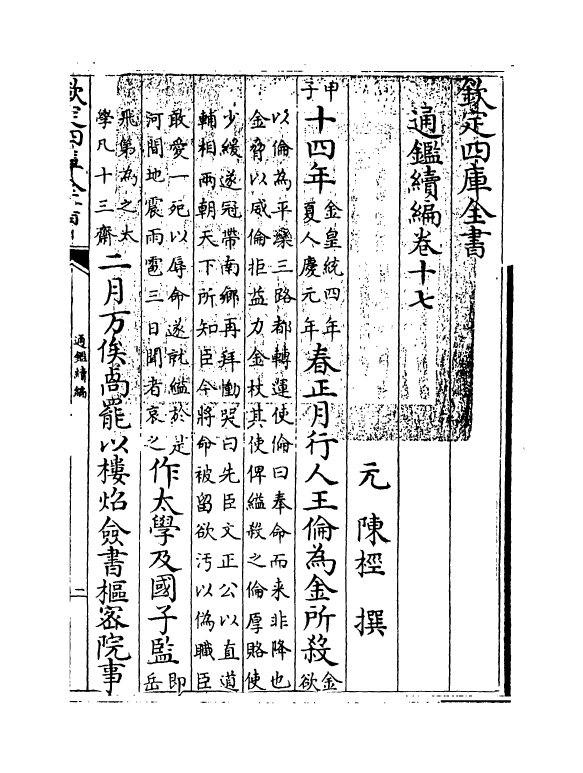 欽定四庫全書
通鑑續編卷十七
元 陳桱 撰
甲子十四年金皇統四年夏人慶元年春正月行人王倫為金所殺金欲
以倫為平灤三路都轉運使倫曰奉命而来非降也
金脅以威倫拒益力金杖其使俾縊殺之倫厚賂使
少緩遂冠帶南鄉再拜慟哭曰先臣文正公以直道
輔相兩朝天下所知臣今將命被留欲汚以偽職臣
敢愛一死以辱命遂就縊於是
河間地震雨雹三日聞者哀之作太學及國子監即岳
飛第為之太
學凡十三齋二月万俟卨罷以樓炤僉書樞密院事
通鑑續編